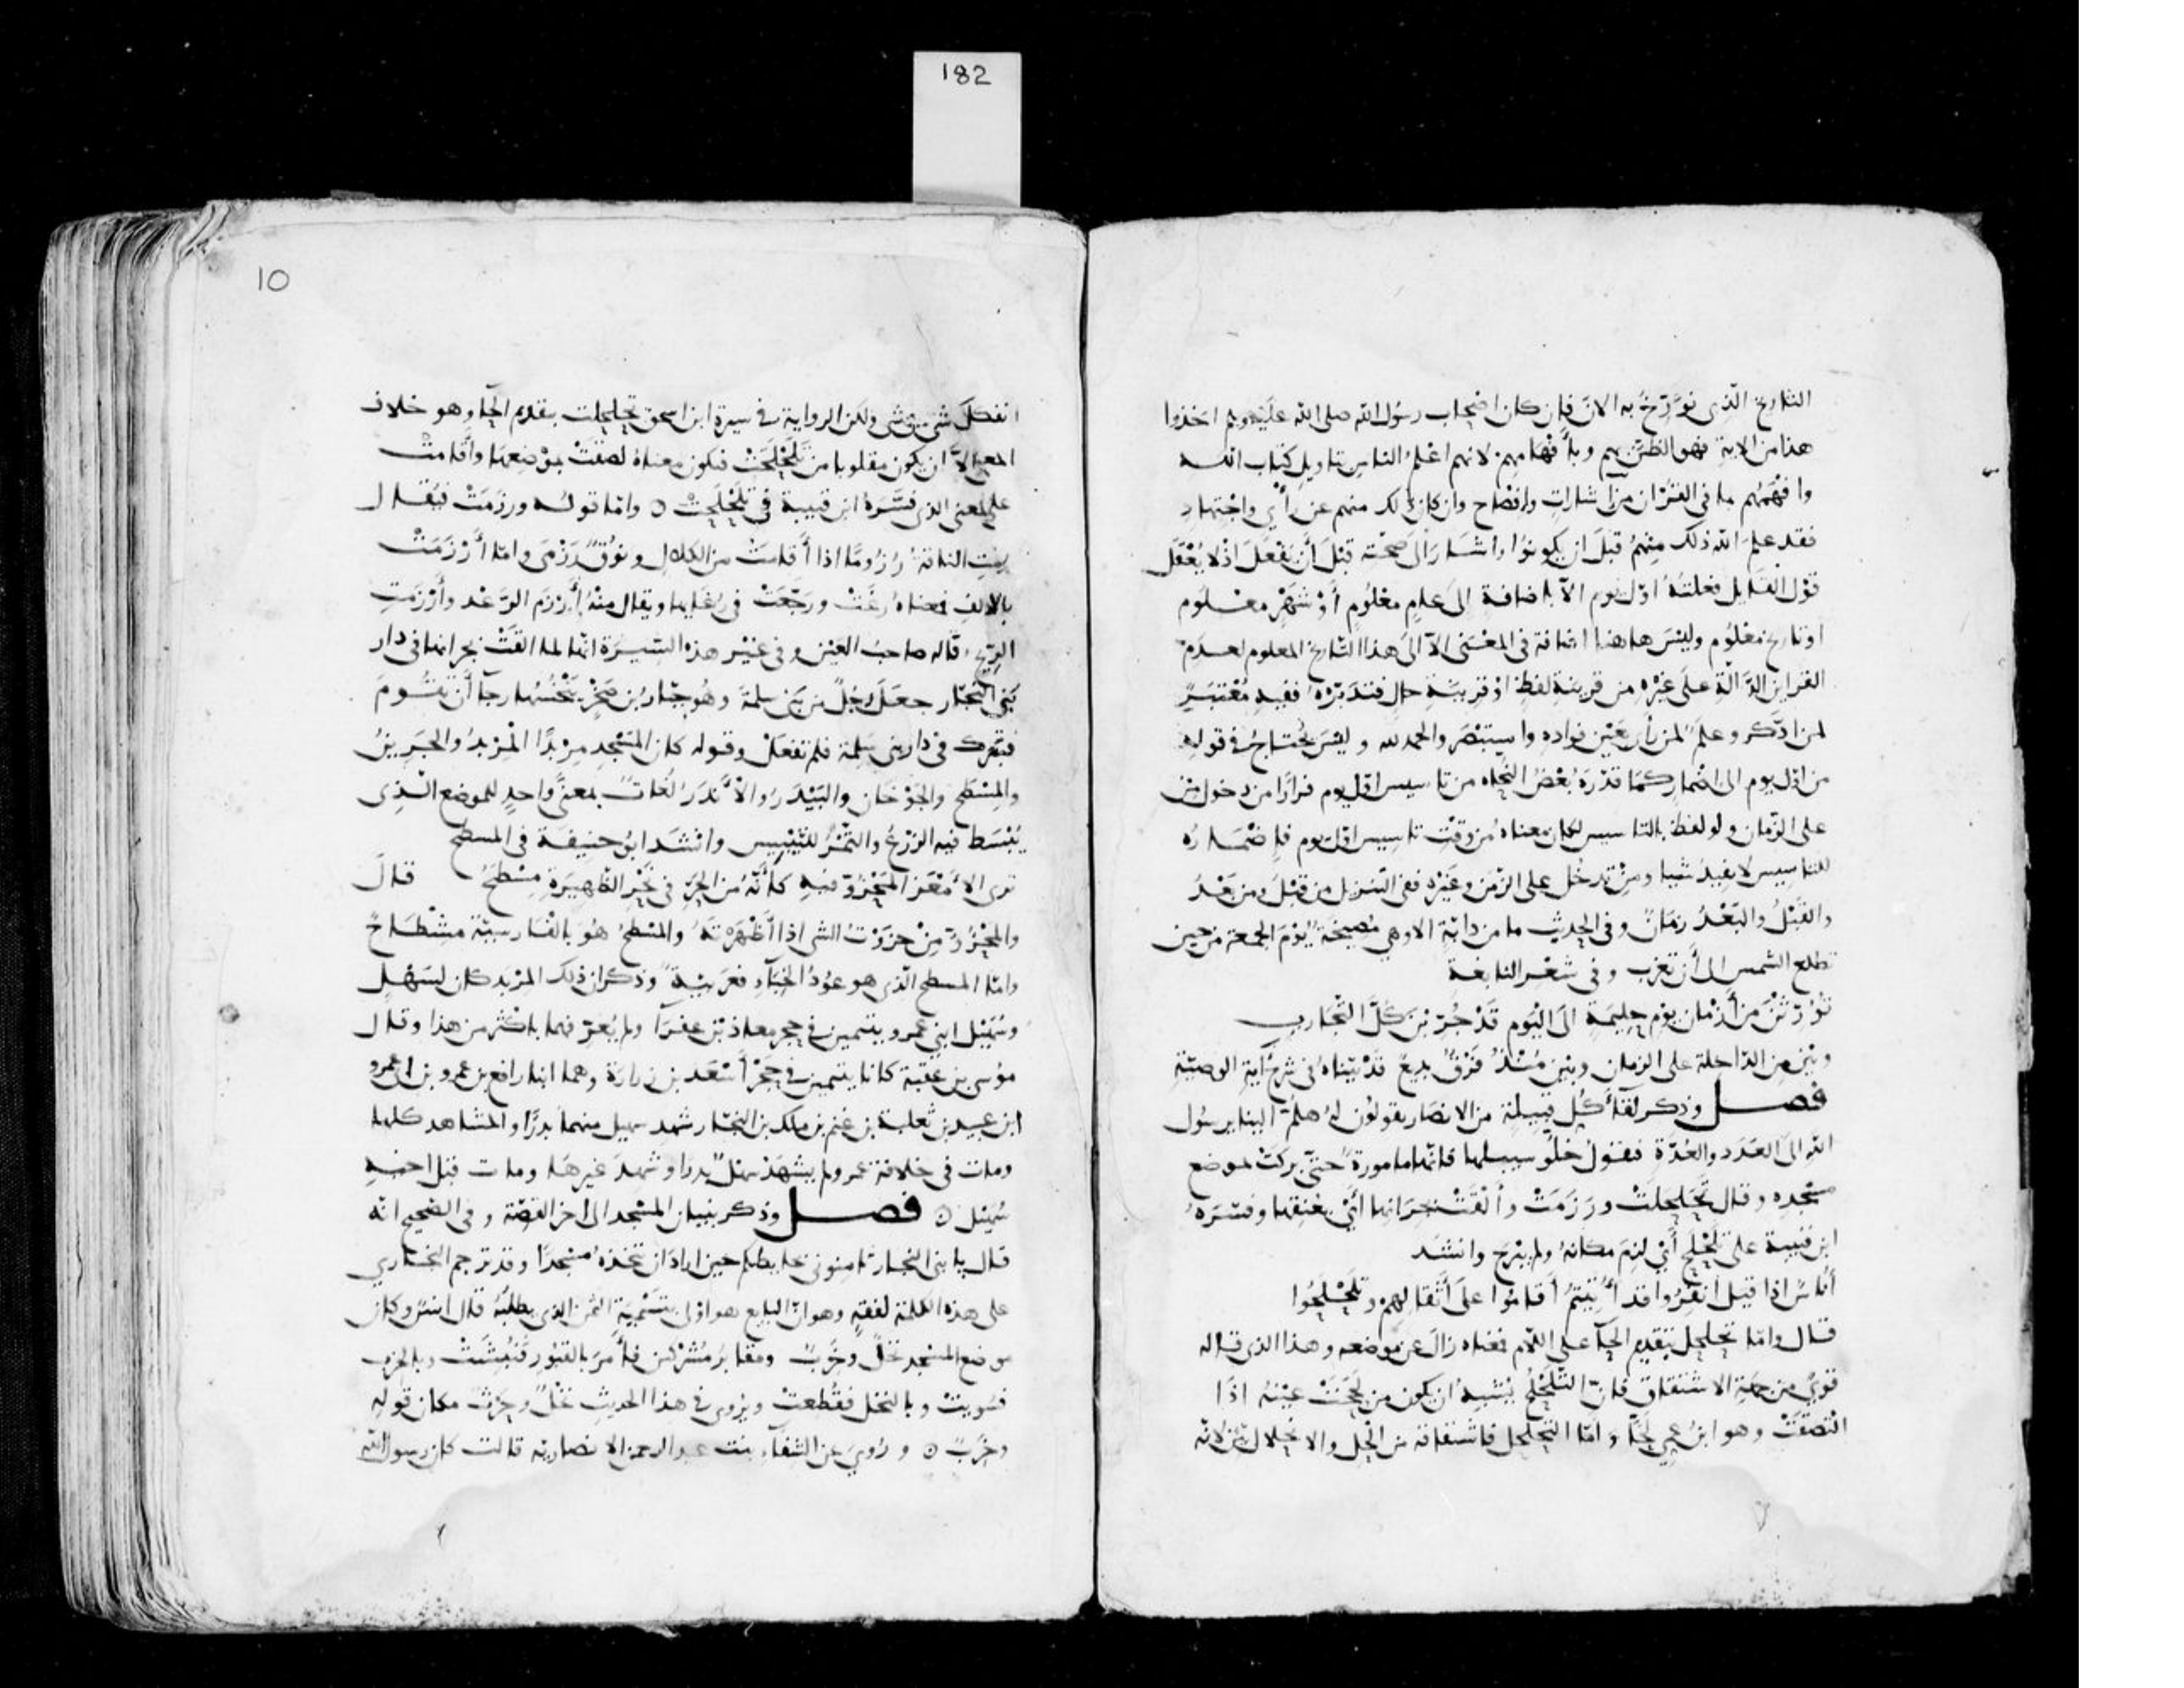 182
التاريخ الذي نُؤَرِّخُ به الان فإن كان اصْحاب رسُول الله صلى الله عليه وسلم اخذوا
هذا من الاية فهو الظن بهم وبأَفْهامهم لانهم اعْلمُ الناس بتاويل كتاب الله
وافْهَمُهم بما في القُرْان من اشاراتٍ وافصاح وان كان ذلك منهم عن رَأْيٍ واجْتهادٍ
فقد علم الله ذلك منهمُ قبلَ ان يكونوا واشارَ الَى صحته قبْلَ أن يَفْعَلَ اذْ لا يُعْقَل
قوْل القايل فعلتهُ اول يوم الا باضافة الى عامٍ معْلُومٍ أوْ شهْرٍ معْلُوم
او تاريخ معْلُوم وليْسَ هاهنا اضافة في المعْنى الا الَى هذا التاريخ المعلوم لعدم
القراين الدَّالَّةِ علَى غيْرِه من قرينةِ لفظٍ اوْ قرينَةِ حالٍ فتدبَّرْهُ ففيهِ مُعْتَبَرٌ
لمن اذَّكر وعلمٌ لمن رأى بعَيْن فواده واستبْصَر والحمد لله وليْسَ يُحْتاجُ في قولهِ
من اوّل يوم الى اضْمارٍ كمَا قدّرَهُ بعْضُ النُّحاه من تاسيس اوّل يوم فرارًا من دخول منْ
على الزّمان ولو لفظ بالتاسيس لكان معناه مُن وقْتِ تاسيس اوّل يوم فإضْمارُه
للتاسيس لا يفِيدُ شيا ومنْ تدخُل على الزمن وغيْرِه ففي التنزيل من قبْلُ ومن بَعْدُ
والقَبْلُ والبَعْدُ زمَانٌ وفي الحديث ما من دابّةٍ الا وهي مُصِيخَةٌ يوْمَ الجمعة من حين
تطلع الشمس الى أن تغرب وفي شعْر النابغة
تُوُرِّثْنَ من أَزْمان يوْم حليمةٍ الَى اليْوم قد جُرّبْنَ كلَّ التّجَاربِ
وبيْن من الداخلة على الزمان وبيْن مُنْذُ فرْقٌ بديعٌ قدْ بيّناهُ في شرح آية الوصيّةِ
فصل وذكر لقاءَ كُل قبيلةٍ من الانصار يقولُون لهُ هلمَّ الينا يرسُول
الله الَى العَدَد والعُدّةِ فيقول خلُّو سبيلها فانّها مامورةٌ حتى بركتْ بموضع
مسْجدِه وقال تحلحلتْ ورزمَتْ وألْقَتْ بجرانها أَيْ بعنقها وفسّرَهُ
ابن قتيبة على تلَحْلح أَيْ لزمَ مكانهُ ولم يبْرح وانشد
أُنَاسٌ اذا قيل انْفِرُوا قد أُتيتمُ أقاموا علَى أثْقالِهم وتلَحْلَحُوا
قال وامّا تحلحل بتقديم الحآ على اللّام فمعناه زالَ عن موضعه وهذا الذي قاله
قويٌّ من جهَةِ الاشتقاق فانّ التلَحْلحَ يُشْبهُ ان يكون من لَحِحَتْ عيْنُهُ اذَا
التصقتْ وهو ابنُ عمي لَحًّا وامّا التحلحل فاشتقاقه من الحَلّ والانحلال بيّنٌ لانّه
10
انفكاك شيْ من شي ولكن الرواية في سيرة ابن اسحق تحلحلت بتقديم الحآ وهو خلاف
المعنى الاَّ ان يكون مقلوبا من تَلَحْلَحَتْ فيكون معناهُ لصقتْ بموْضعها وأقامتْ
على المعنى الذي فسَّرَهُ ابن قتيبة في تَلَحْلَحَتْ ۞ وامّا قولُه ورزمَتْ فيُقال
رزمتِ الناقةُ رُزُومًا اذا أقامَتْ من الكلال ونُوقٌ رَزْمَى وامّا أَرْزَمَتْ
بالالفِ فمعناهُ رغَتْ ورجَّعَتْ في رُغايها ويقال منْهُ أَرْزَم الرّعْد وأَرْزَمَتِ
الرّيح، قاله صاحبُ العَيْن وفي غيْر هذه السّيرَة انّها لمّا القَتْ بجرانها في دار
بَني النجّار جعَلَ رجُلٌ من بَني سلمَةَ وهُو جبّارُ بن صَخْرٍ ينْخُسُها رجآ أن تَقُومَ
فتبْرك في دار بني سلِمة فلم تفعلْ وقوله كان المَسْجد مِرْبدًا الْمرْبدُ والجَرِينُ
والمِسْطح والجَوْخان والبَيْدَرُ والأَنْدَرُ لُغَاتٌ بمعنًى واحدٍ للموضع الّذي
يُبْسَط فيه الزّرْعُ والتَّمْرُ للتّيْبيس وانشد ابوُ حنيفة في المسطح
ترى الأمْعَزَ المَحْزُوّ فيهِ كأنّهُ من الحَرّ في نَحْرِ الظّهيرَةِ مِسْطَحُ قال
والمَحْزُوُّ منْ حزَوْتُ الشي اذا أظْهَرْتَهُ والمسْطحُ هُوَ بالفارسيّة مشْطَاحٌ
وامّا المسطح الّذي هو عوُدُ الخبَآءِ فعرَبيّةٌ وذكر ان ذلك المرْبد كان لسَهْلٍ
وسُهَيْل ابني عمرو يتيمين في حجر معاذ بن عفرآ ولم يُعرّف بهما باكثر من هذا وقال
موُسى بن عقبة كانا يتيمين في حِجْرِ أسْعَد بن زرارَة وهما ابنا رافع بن عمرو بن ابى عمرو
ابن عبيد بن ثعلبة بن غنم بن ملك بن النجّار شهد سهيل منهما بدرًا والمشاهد كلها
ومات في خلافة عمر ولم يشهَدْ سهْلٌ بدرا وشهدَ غيرهَا ومات قبل اخيهِ
سُهَيْل ۞ فصل وذكر بنيان المسْجد الى اخر القصّة وفي الصّحيح انّه
قال يا بني النجار ثامنوني بحايطكم حين اراد ان يتخذهُ مسْجدًا وقد ترجم البخاري
على هذه الكلمة لفقهٍ وهو انّ البايع هو اولى بتسْميَة الثمن الذي يطلبُهُ قال انسٌ وكان
موضعُ المسْجد نخْلٌ وخَرِبٌ ومقابرُ مُشْركين فأمَرَ بالقبُور فنُبِشَتْ وبالخرب
فسُويتْ وبالنخل فقُطعتْ ويُرْوى في هذا الحديث نخْلٌ وحَرْثٌ مكان قولِه
وخَرِبٌ ۞ ورُوِيَ عن الشفآءِ بنت عبد الرحمن الانصاريه قالت كان رسول الله